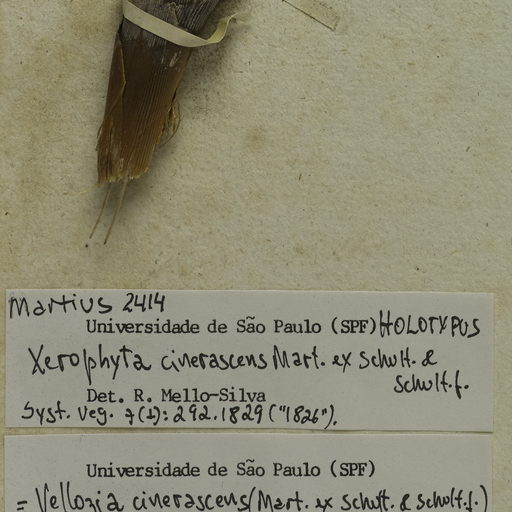 Martius 2414
Universidade de São Paulo (SPF) HOLOTYPUS
Xerophyta cinerascens Mart. ex Schult. &
Schult.f.
Det. R. Mello-Silva
Syst. Veg. 7(1): 292. 1829 ("1826").
Universidade de São Paulo (SPF)
= Vellozia cinerascens (Mart. ex Schult. & Schult.f.)